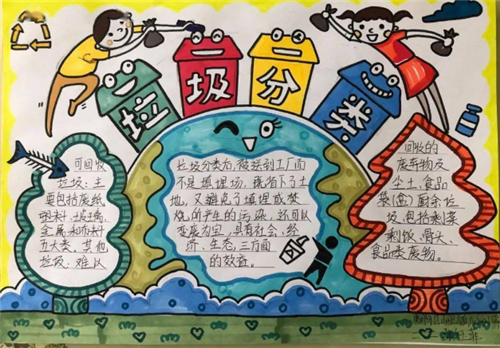 垃圾分类
可回收
垃圾:主
要包括废纸
塑料、玻璃、
金属和布料
五大类、其他
垃圾:难以
垃圾分类为,被送到工厂而
不是填埋场,既省下了土
地,又避免了填埋或焚
烧所产生的污染,还可以
变废为宝,具有社会、经
济、生态三方面
的效益。
回收的
废弃物及
尘土、食品
袋(盒)厨余垃
圾,包括剩菜
剩饭、骨头、
食品类废物。